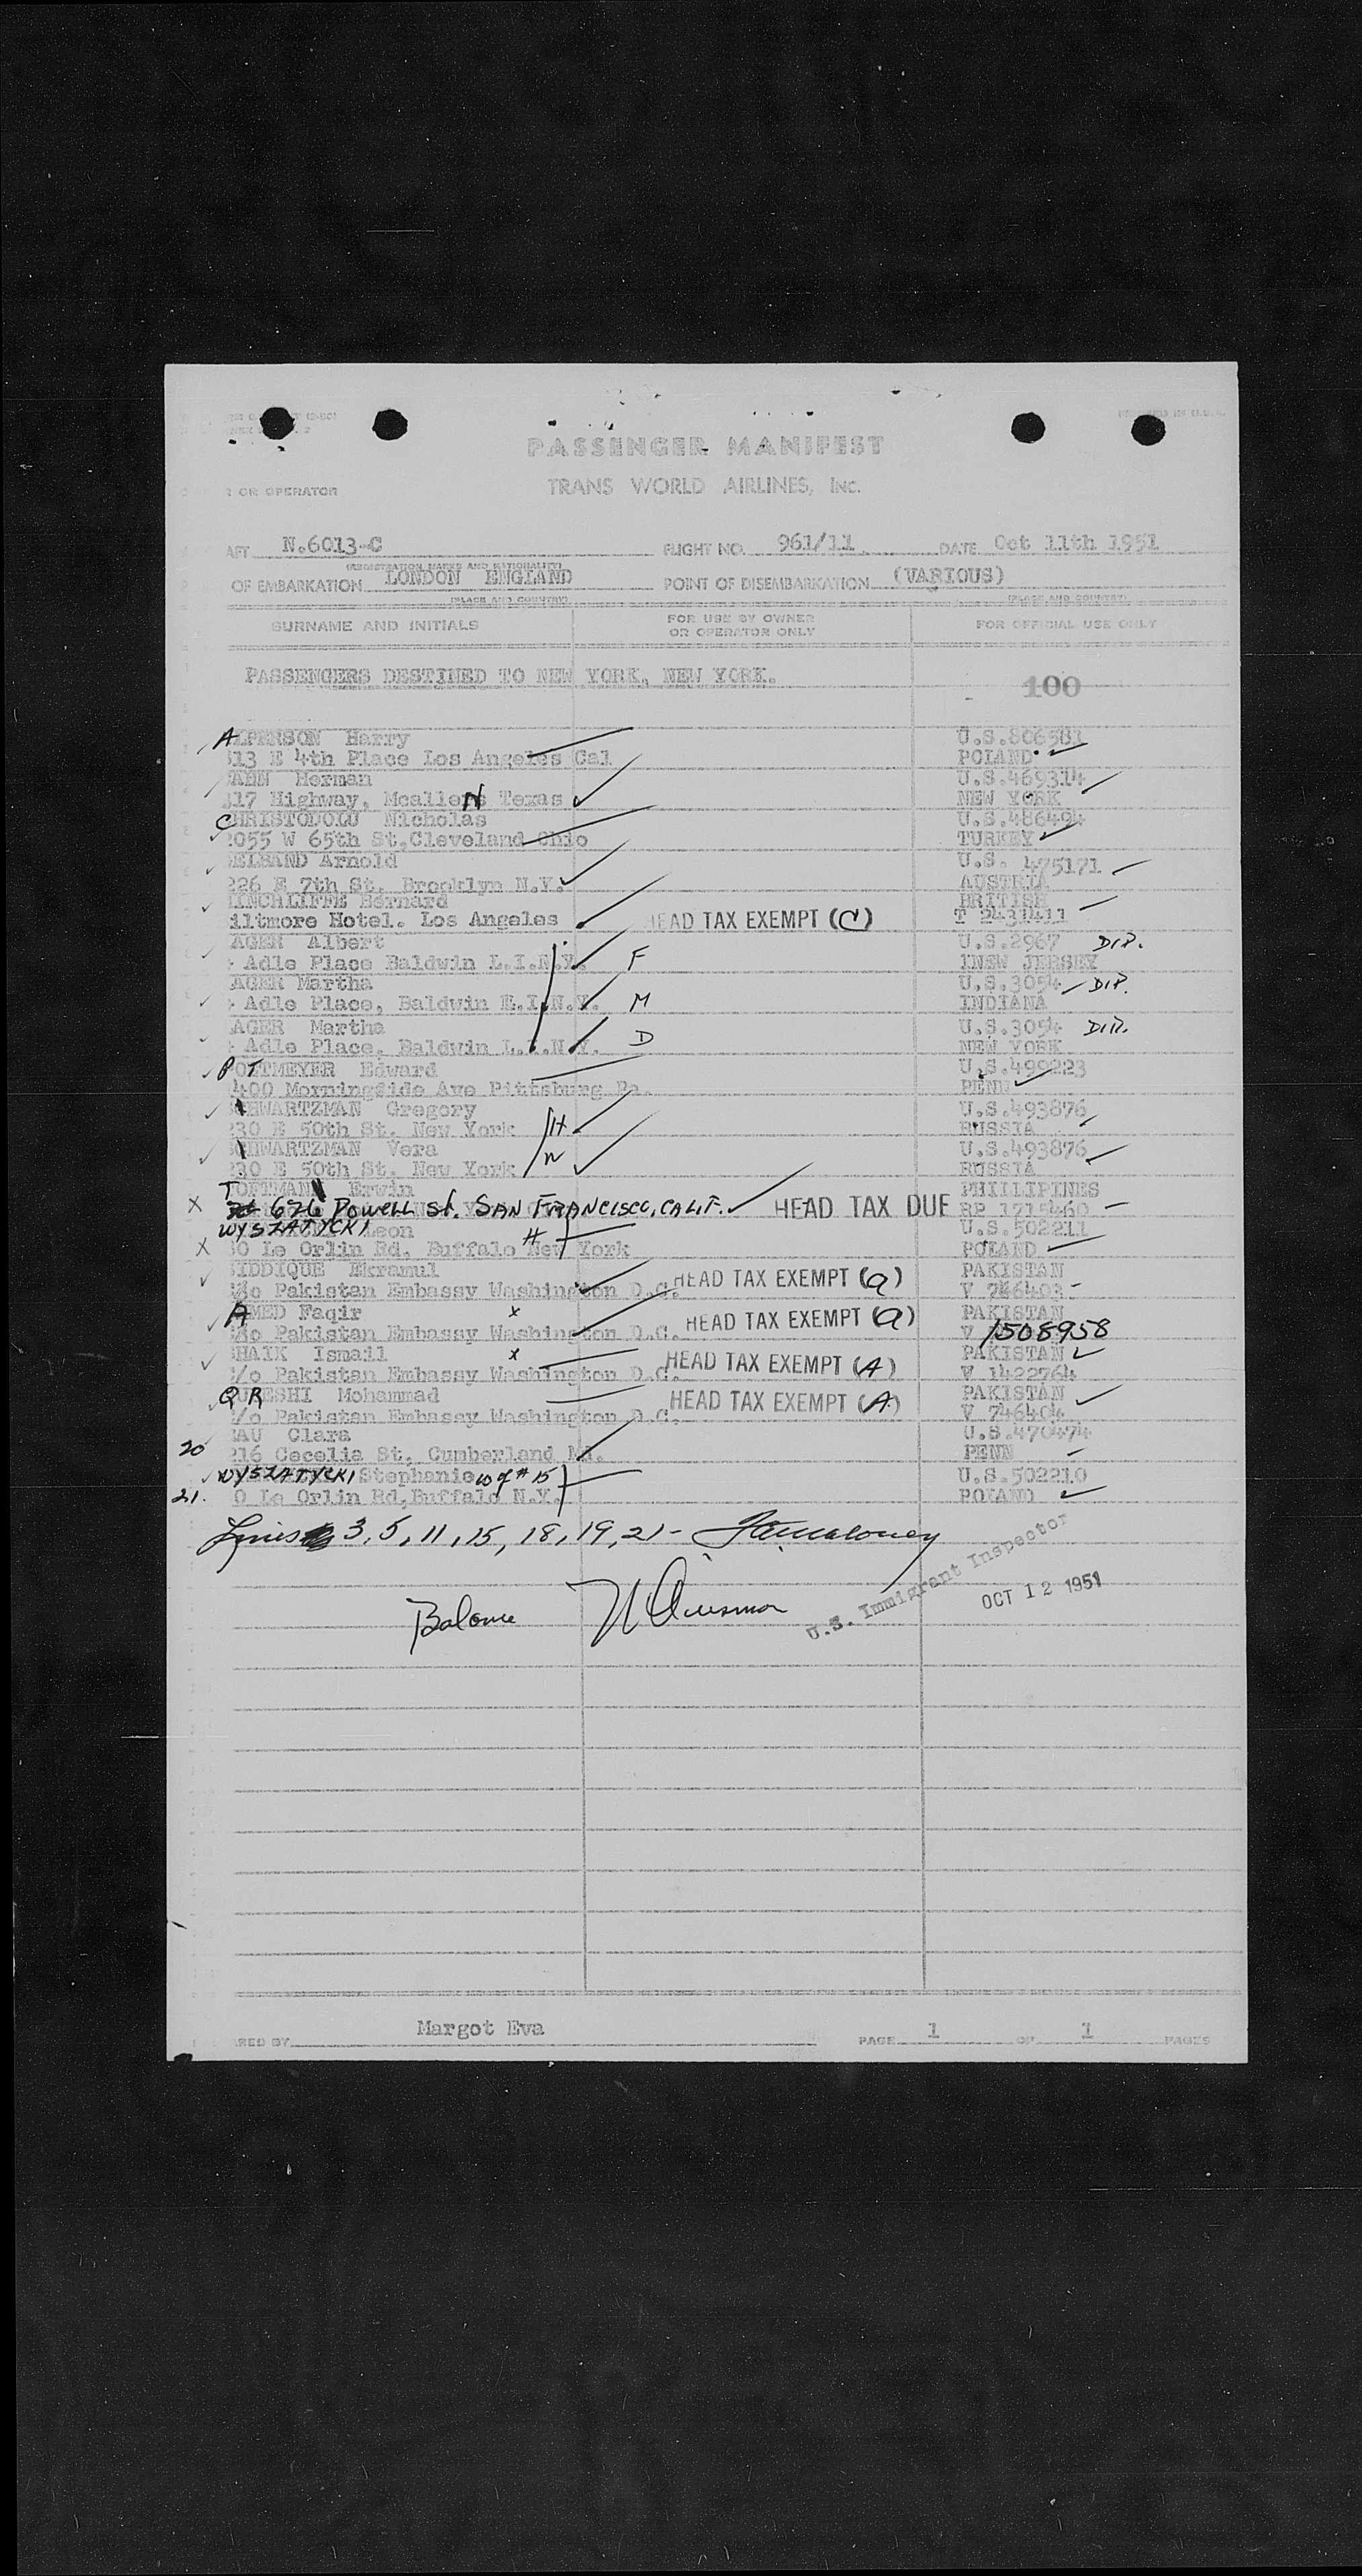 PASSENGER MANIFEST
TRANS WORLD AIRLINES, INC.
R OR OPERATOR
AFT N.6013-C FLIGHT NO. 961/11 DATE Oct 11th 1951
(REGISTRATION MARKS AND NATIONALITY)
OF EMBARKATION LONDON ENGLAND POINT OF DISEMBARKATION (VARIOUS)
(PLACE AND COUNTRY) (PLACE AND COUNTRY)
SURNAME AND INITIALS FOR USE BY OWNER OR OPERATOR ONLY FOR OFFICIAL USE ONLY
PASSENGERS DESTINED TO NEW YORK, NEW YORK.
100
ALPERSON Harry U.S.806581
313 E 4th Place Los Angeles Cal POLAND
AHN Herman U.S.469314
317 Highway, Mcallens Texas N NEW YORK
CHRISTODOLU Nicholas U.S.486494
2055 W 65th St, Cleveland Ohio TURKEY
ELBAND Arnold U.S. 475171
226 E 7th St. Brooklyn N.Y. AUSTRIA
HINCHLIFFE Bernard BRITISH
iltmore Hotel. Los Angeles HEAD TAX EXEMPT (C) T 2431411
AGER Albert U.S.2967 DIP.
Adle Place Baldwin L.I.N.Y. F NEW JERSEY
AGER Martha U.S.3054 DIP.
Adle Place, Baldwin L.I.N.Y. M INDIANA
AGER Martha U.S.3054 DIP.
Adle Place, Baldwin L.I.N.Y. D NEW YORK
POTTMEYER Edward U.S.499223
400 Morningside Ave Pittsburg Pa. PENN
SCHWARTZMAN Gregory U.S.493876
230 E 50th St. New York H RUSSIA
SCHWARTZMAN Vera U.S.493876
230 E 50th St. New York W RUSSIA
TOFTMAN Erwin PHILLIPINES
X 626 Powell St. SAN FRANCISCO, CALIF. HEAD TAX DUE RP 1715460
WYSZATYCKI Leon H U.S.502211
X 30 Le Orlin Rd, Buffalo New York POLAND
SIDDIQUE Ekramul HEAD TAX EXEMPT (a) PAKISTAN
c/o Pakistan Embassy Washington D.C. V 746403
AHMED Faqir x HEAD TAX EXEMPT (a) PAKISTAN
c/o Pakistan Embassy Washington D.C. V 1508958
SHAIK Ismail x HEAD TAX EXEMPT (A) PAKISTAN
c/o Pakistan Embassy Washington D.C. V 1422764
QURESHI Mohammad HEAD TAX EXEMPT (A) PAKISTAN
c/o Pakistan Embassy Washington D.C. V 746404
RAU Clara U.S.470474
20 216 Cecelia St, Cumberland Md. PENN
WYSZATYCKI Stephanie w of #15 U.S.502210
21. 0 Le Orlin Rd, Buffalo N.Y. POLAND
Lines 3, 5, 11, 15, 18, 19, 21 -
Balance
U.S. Immigrant Inspector
OCT 12 1951
RED BY Margot Eva PAGE 1 OF 1 PAGES